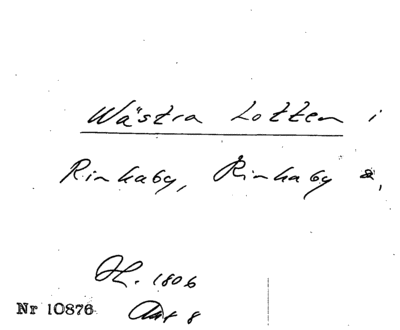 Wästra Lotten i
Rinkaby, Rinkaby
H. 1806
Nr 10876 Akt 8